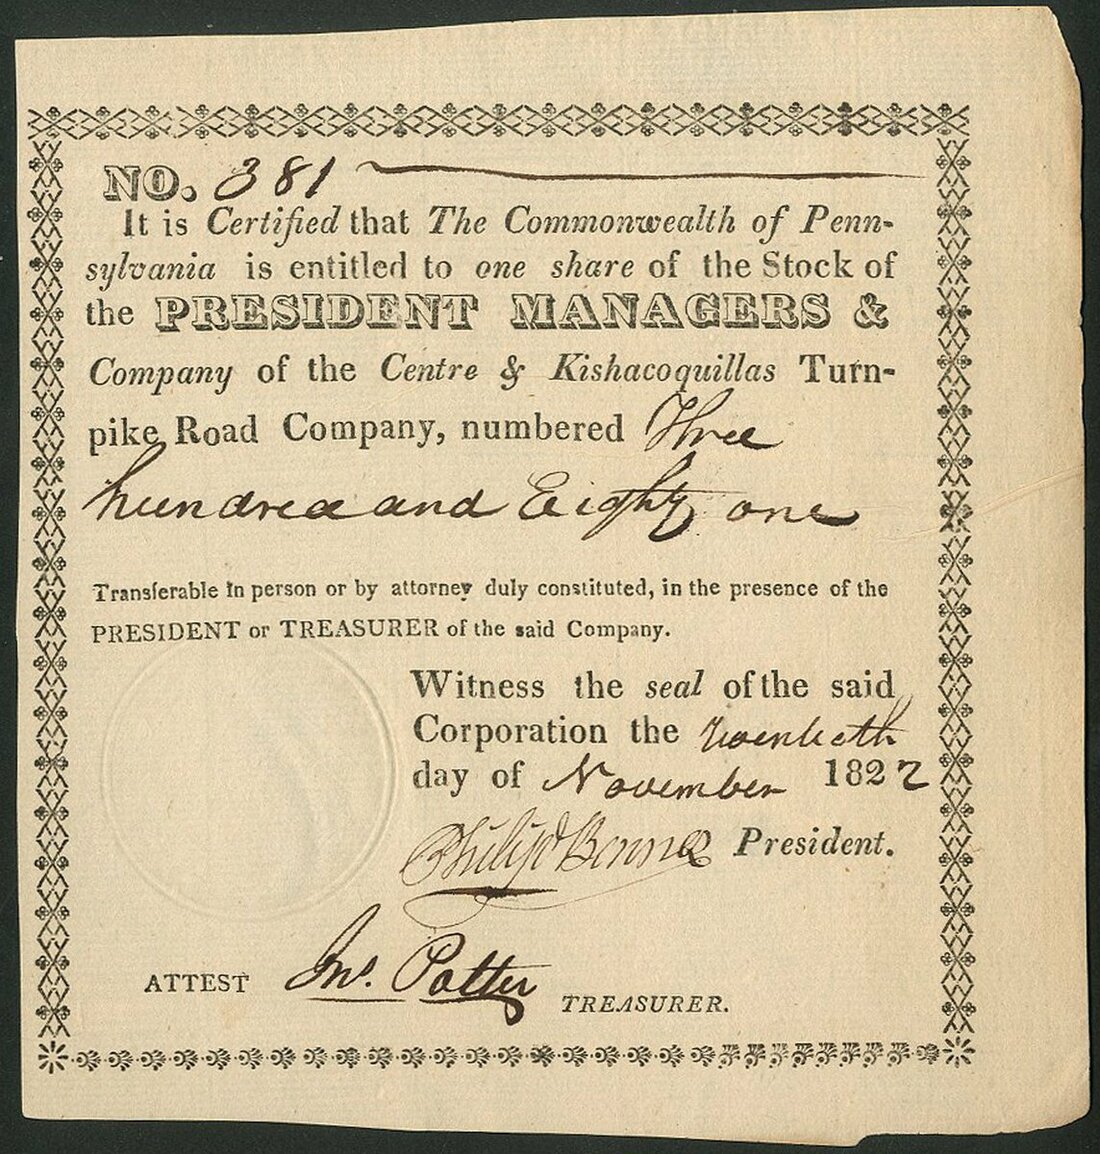 NO. 381
It is Certified that The Commonwealth of Penn-
sylvania is entitled to one share of the Stock of
the PRESIDENT MANAGERS &
Company of the Centre & Kishacoquillas Turn-
pike Road Company, numbered Three
hundred and Eighty one
Transferable in person or by attorney duly constituted, in the presence of the
PRESIDENT or TREASURER of the said Company.
Witness the seal of the said
Corporation the twentieth
day of November 1822
Philip Benner President.
ATTEST Jno. Potter TREASURER.